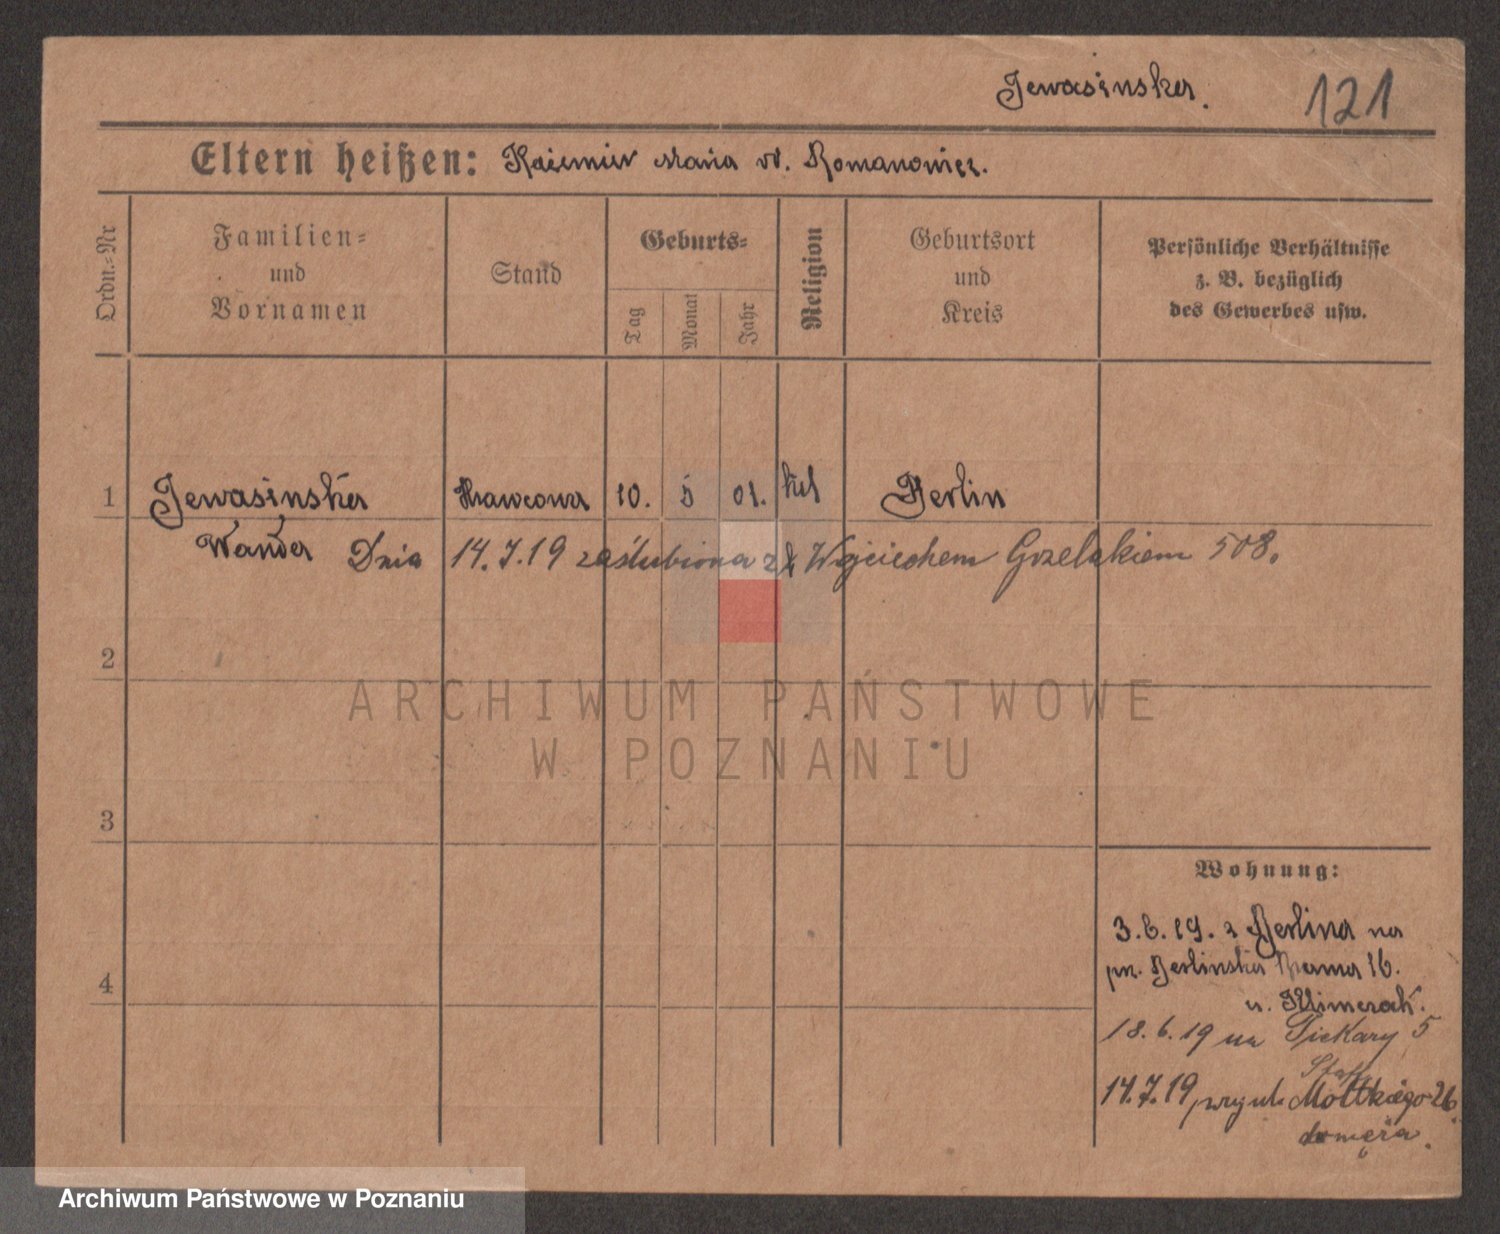 Jewasinska.
121
Eltern heißen: Kazimier Maria vd. Romanowicz.
Ordn.-Nr
Familien-
und
Vornamen
Stand
Geburts-
Tag
Monat
Jahr
Religion
Geburtsort
und
Kreis
Persönliche Verhältnisse
z. B. bezüglich
des Gewerbes usw.
1
Jewasinska
Krawcowa
10.
5
01.
kat
Berlin
Wanda
Dnia 14.7.19 zaślubiona z Wojciechem Grzelakiem 508.
2
ARCHIWUM PAŃSTWOWE
W POZNANIU
3
Wohnung:
3.6.19. z Berlina na
prz. Berlińska Brama 16.
u. Klimczak.
4
18.6.19 na Piekary 5
14.7.19 Moltkiego 26
do męża.
Archiwum Państwowe w Poznaniu